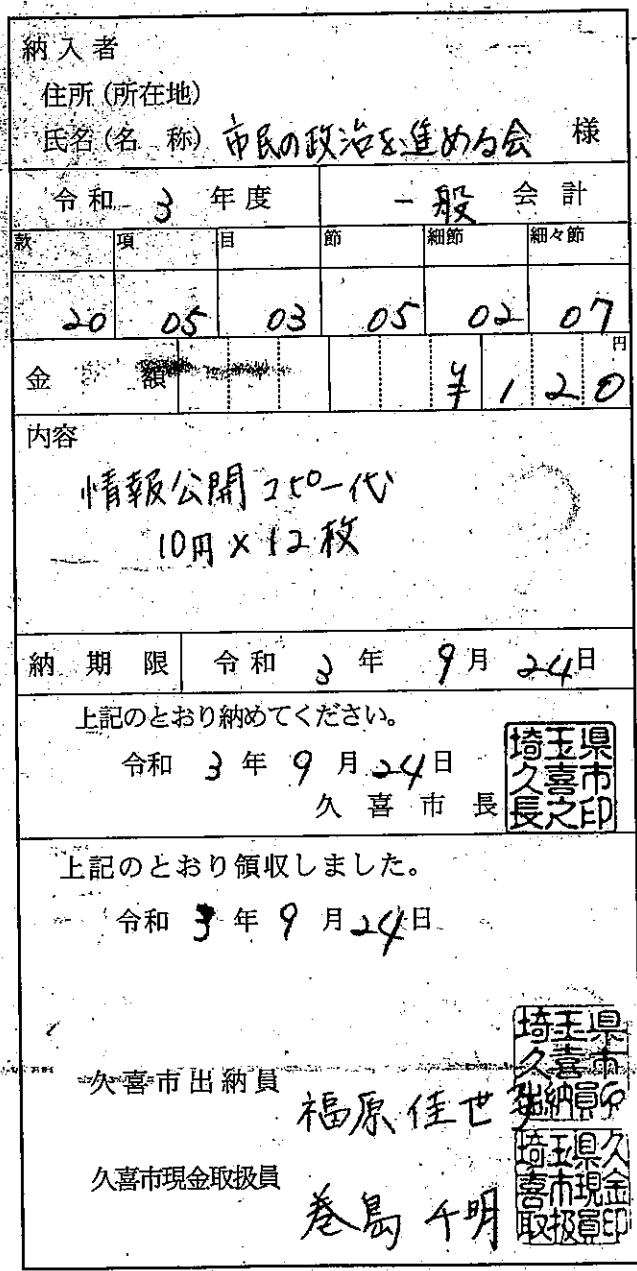 納入者
住所(所在地)
氏名(名 称) 市民の政治を進める会 様
令和 3 年度 一般 会計
款 項 目 節 細節 細々節
20 05 03 05 02 07
円
金 額 ¥120
内容
情報公開コピー代
10円×12枚
納期限 令和 3 年 9月 24日
上記のとおり納めてください。
令和 3 年 9 月 24日
久喜市長
埼玉県久喜市長之印
上記のとおり領収しました。
令和 3 年 9 月 24日
久喜市出納員 福原 佳世
埼玉県久喜市出納員印
久喜市現金取扱員 巻島 千明
埼玉県久喜市現金取扱員印